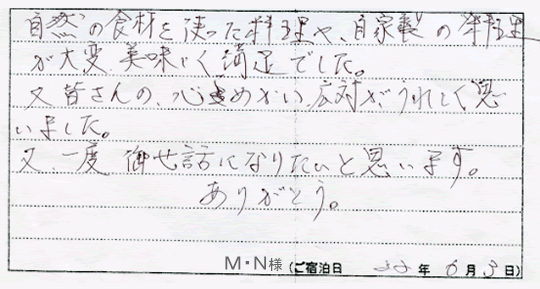 自然の食材を使った料理や、自家製の料理
が大変美味しく満足でした。
又皆さんの、心温かい応対がうれしく思
いました。
又一度御世話になりたいと思います。
ありがとう。
M・N様 (ご宿泊日 22年6月3日)